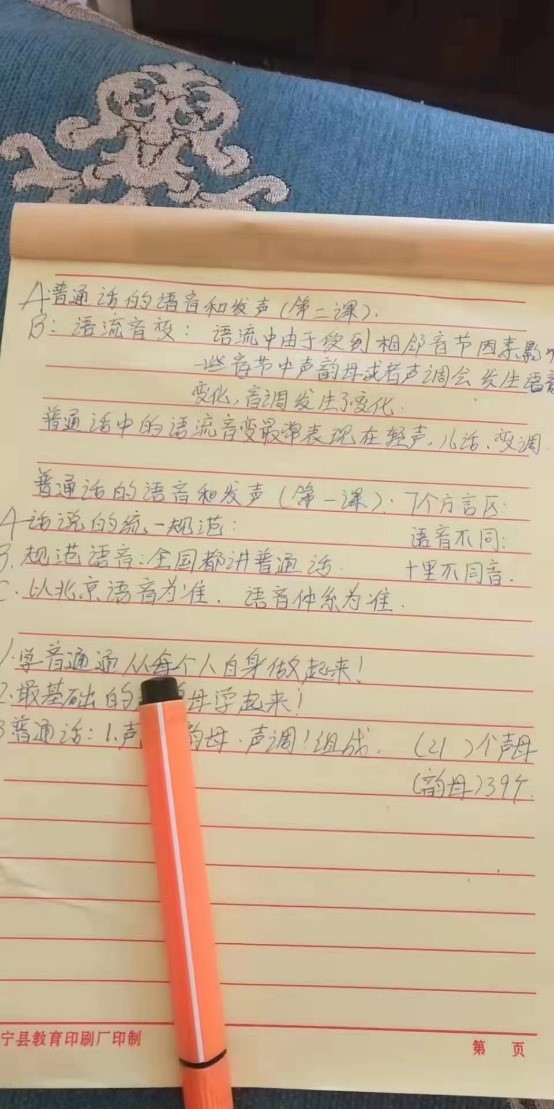 A普通话的语音和发声(第二课).
B: 语流音变: 语流中由于受到相邻音节因素影
一些音节中声韵母或者声调会发生语音
变化,音调发生了变化.
普通话中的语流音变最常表现在轻声,儿话、变调.
普通话的语音和发声(第一课): 7个方言区:
A话说的统一规范: 语音不同:
B.规范语音:全国都讲普通话. 十里不同音.
C.以北京语音为准. 语音体系为准.
1.学音通通从每个人自身做起来!
2.最基础的 母学起来!
3普通话:1.声 韵母.声调!组成. (21)个声母
(韵母)39个.
宁县教育印刷厂印制 第 页